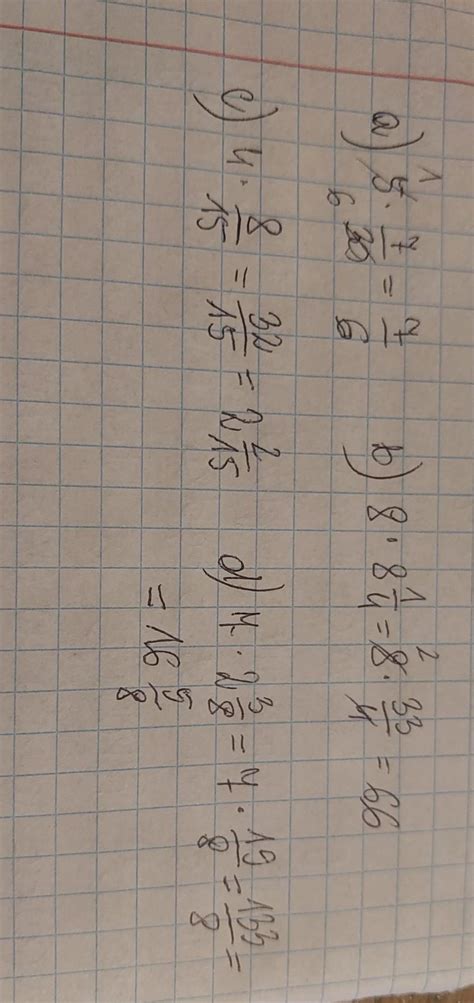 a) 5 · 7/30 = 7/6 b) 8 · 8 1/4 = 8 · 33/4 = 66
c) 4 · 8/15 = 32/15 = 2 2/15 d) 7 · 2 3/8 = 7 · 19/8 = 133/8 =
= 16 5/8